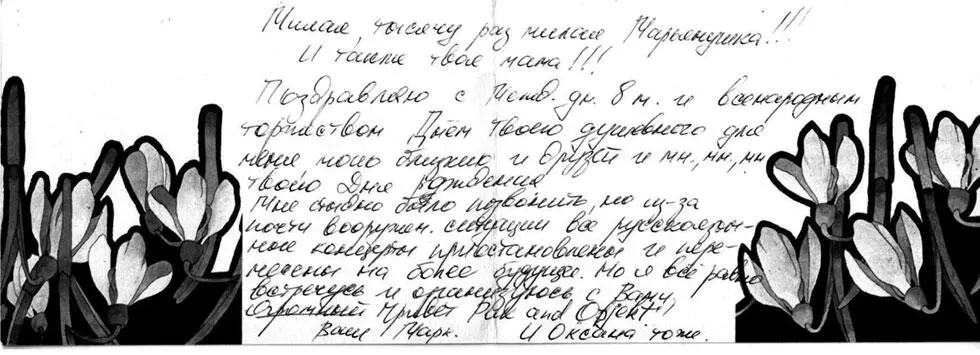 Милая, тысячу раз милая Марьянушка!!!
И также твоя мама!!!
Поздравляю с Межд. дн. 8 м. и всенародным
торжеством Днём твоего душевного для
меня моего близкого и друзей и мн., мн., мн.
твоего Дня рождения
Мне стыдно было позвонить, но из-за
почти вооружен. ситуации все русскоязыч-
ные концерты приостановлены и пере-
несены на более будущее. Но я всё равно
встречусь и организуюсь с Вами,
Огромный Привет and
Ваш Марк. И Оксана тоже.